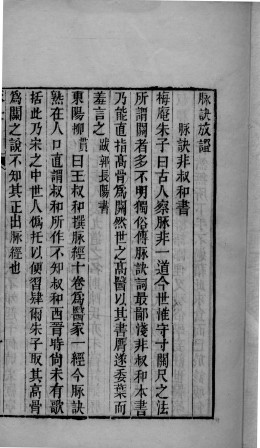 脉訣攷證
脉訣非叔和書
晦庵朱子曰古人察脉非一道今世惟守寸關尺之法
所謂關者多不明獨俗傳脉訣詞最鄙淺非叔和本書
乃能直指高骨爲關然世之高醫以其書贗遂委棄而
羞言之跋郭長陽書
東陽柳貫曰王叔和撰脉經十卷爲醫家一經今脉訣
熟在人口直謂叔和所作不知叔和西晉時尚未有歌
括此乃宋之中世人僞托以便習肄爾朱子取其高骨
爲關之說不知其正出脉經也